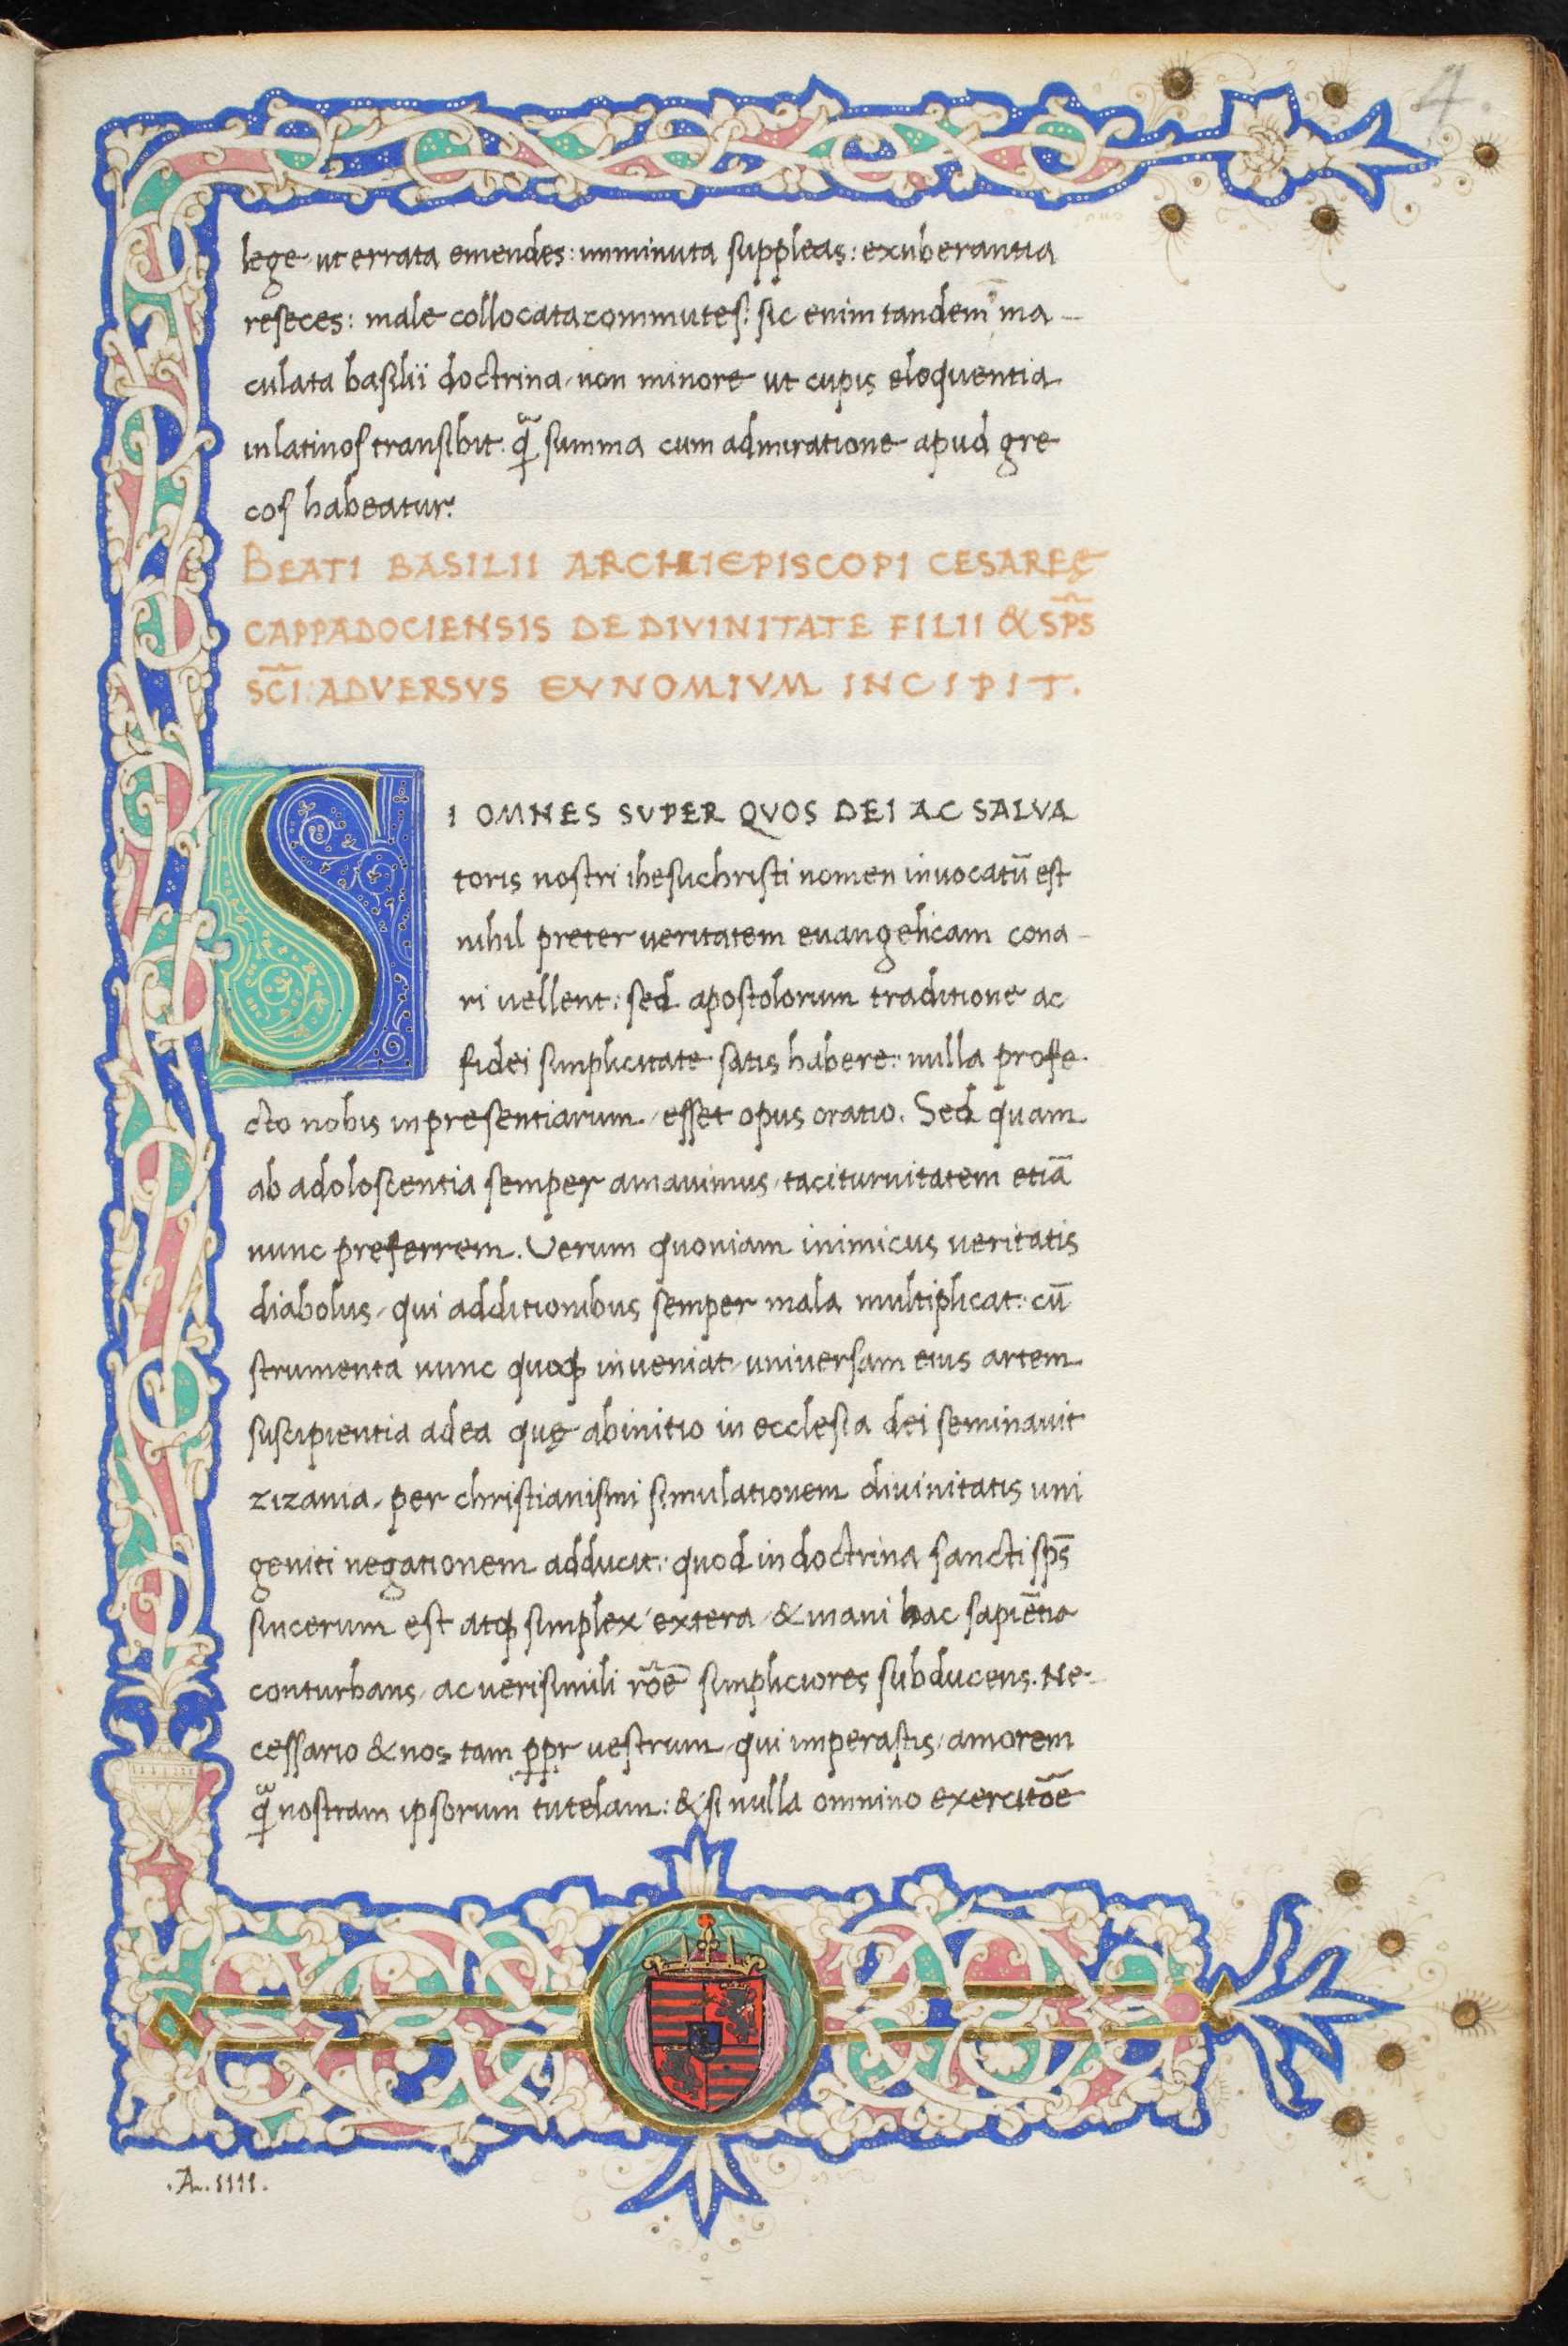 4.
lege ut errata emendes: imminuta suppleas: exuberantia
reseces: male collocata commutes: sic enim tandem ĩma-
culata basilii doctrina, non minore ut cupis eloquentia
in latinos transibit. q̃ summa cum admiratione apud gre
cos habeatur:
BEATI BASILII ARCHIEPISCOPI CESAREĘ
CAPPADOCIENSIS DE DIVINITATE FILII & SP̃S
SC̃I: ADVERSVS EVNOMIVM INCIPIT.
SI OMNES SVPER QVOS DEI AC SALVA
toris nostri ihesu christi nomen invocatũ est
nihil preter veritatem evangelicam cona-
ri vellent: sed apostolorum traditione ac
fidei simplicitate satis habere: nulla profe-
cto nobis inpresentiarum, esset opus oratio. Sed quam
ab adoloscentia semper amavimus, taciturnitatem etiã
nunc preferrem. Verum quoniam inimicus veritatis
diabolus, qui additionibus semper mala multiplicat: cũ
strumenta nunc quoqꝫ inveniat, universam eius artem
suscipientia ad ea quę ab initio in ecclesia dei seminavit
zizania, per christianismi simulationem divinitatis uni
geniti negationem adducit: quod in doctrina sancti sp̃s
sincerum est atqꝫ simplex, extera, & inani hac sapiẽtia
conturbans, ac verisimili rõe simpliciores subducens. Ne-
cessario & nos tam ꝓpr vestrum, qui imperastis, amorem
q̃ nostram ipsorum tutelam: & si nulla omnino exercitõe
.A. IIII.